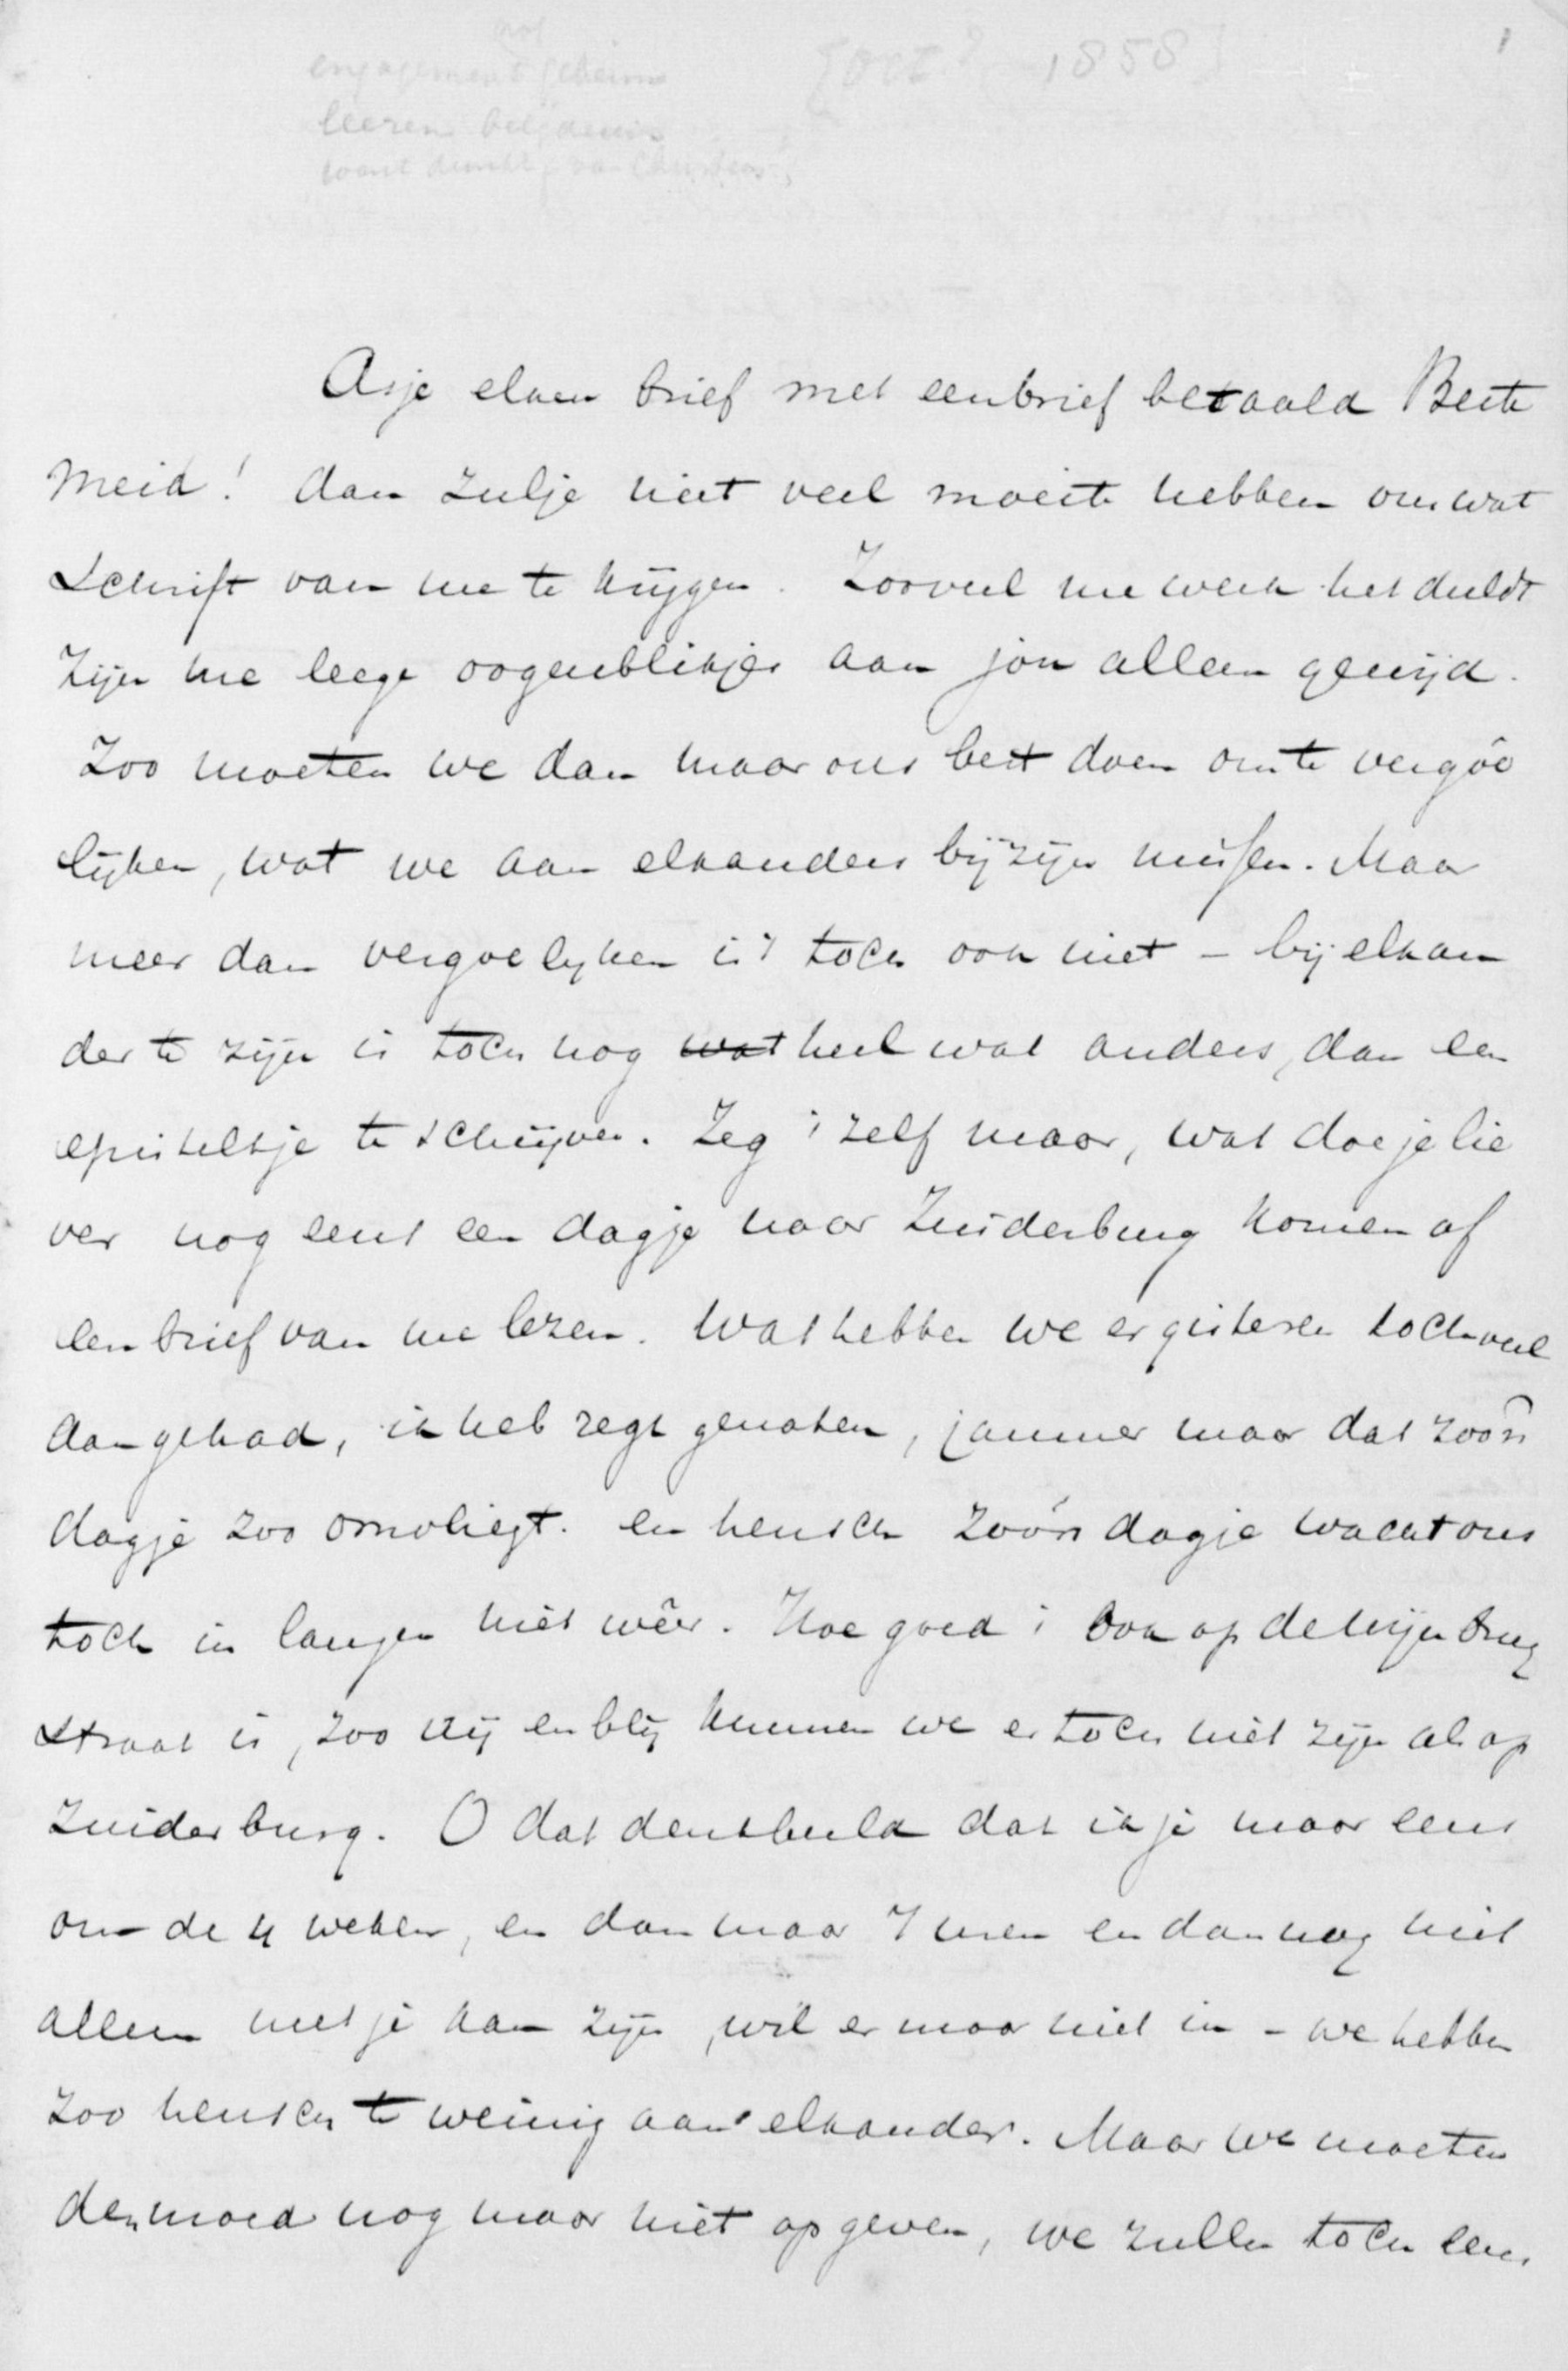 nog
engagement geheim
leeren belijdenis
[Oct? 1858]
1
Asje elken brief met een brief betaald Beste
Meid! dan zulje niet veel moeite hebben om wat
schrift van me te krijgen. Zooveel me werk het duldt
zijn me leege oogenblikjes aan jou alleen gewijd.
Zoo moeten we dan maar ons best doen om te vergôe
lijken, wat we aan elkanders bijzijn missen. Maar
meer dan vergoelyken is 't toch ook niet – bij elkan
der te zijn is toch nog wat heel wat anders, dan een
episteltje te schrijven. Zeg 't zelf maar, wat doe je lie
ver nog eens een dagje naar Zuiderburg komen of
een brief van me lezen. Wat hebben we er gisteren toch veel
aan gehad, ik heb regt genoten, jammer maar dat zoo'n
dagje zoo omvliegt. en heusch zoo'n dagje wacht ons
toch in langen niet wêer. Hoe goed 't ook op de
straat is, zoo vrij en blij kunnen we er toch niet zijn als op
Zuiderburg. O dat denkbeeld dat ik je maar eens
om de 4 weken, en dan maar 7 uren en dan nog niet
alleen met je kan zijn, wil er maar niet in – we hebben
zoo heusch te weinig aan elkander. Maar we moeten
den moed nog maar niet opgeven, we zullen toch eens